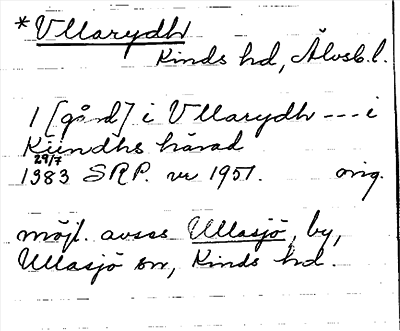 *Vllarydh
Kinds hd, Älvsb. l.
1 [gård] i Vllarydh --- i
Kiindhs härad
29/7
1383 SRP. nr 1951. orig.
möjl. avses Ullasjö, by,
Ullasjö sn, Kinds hd.